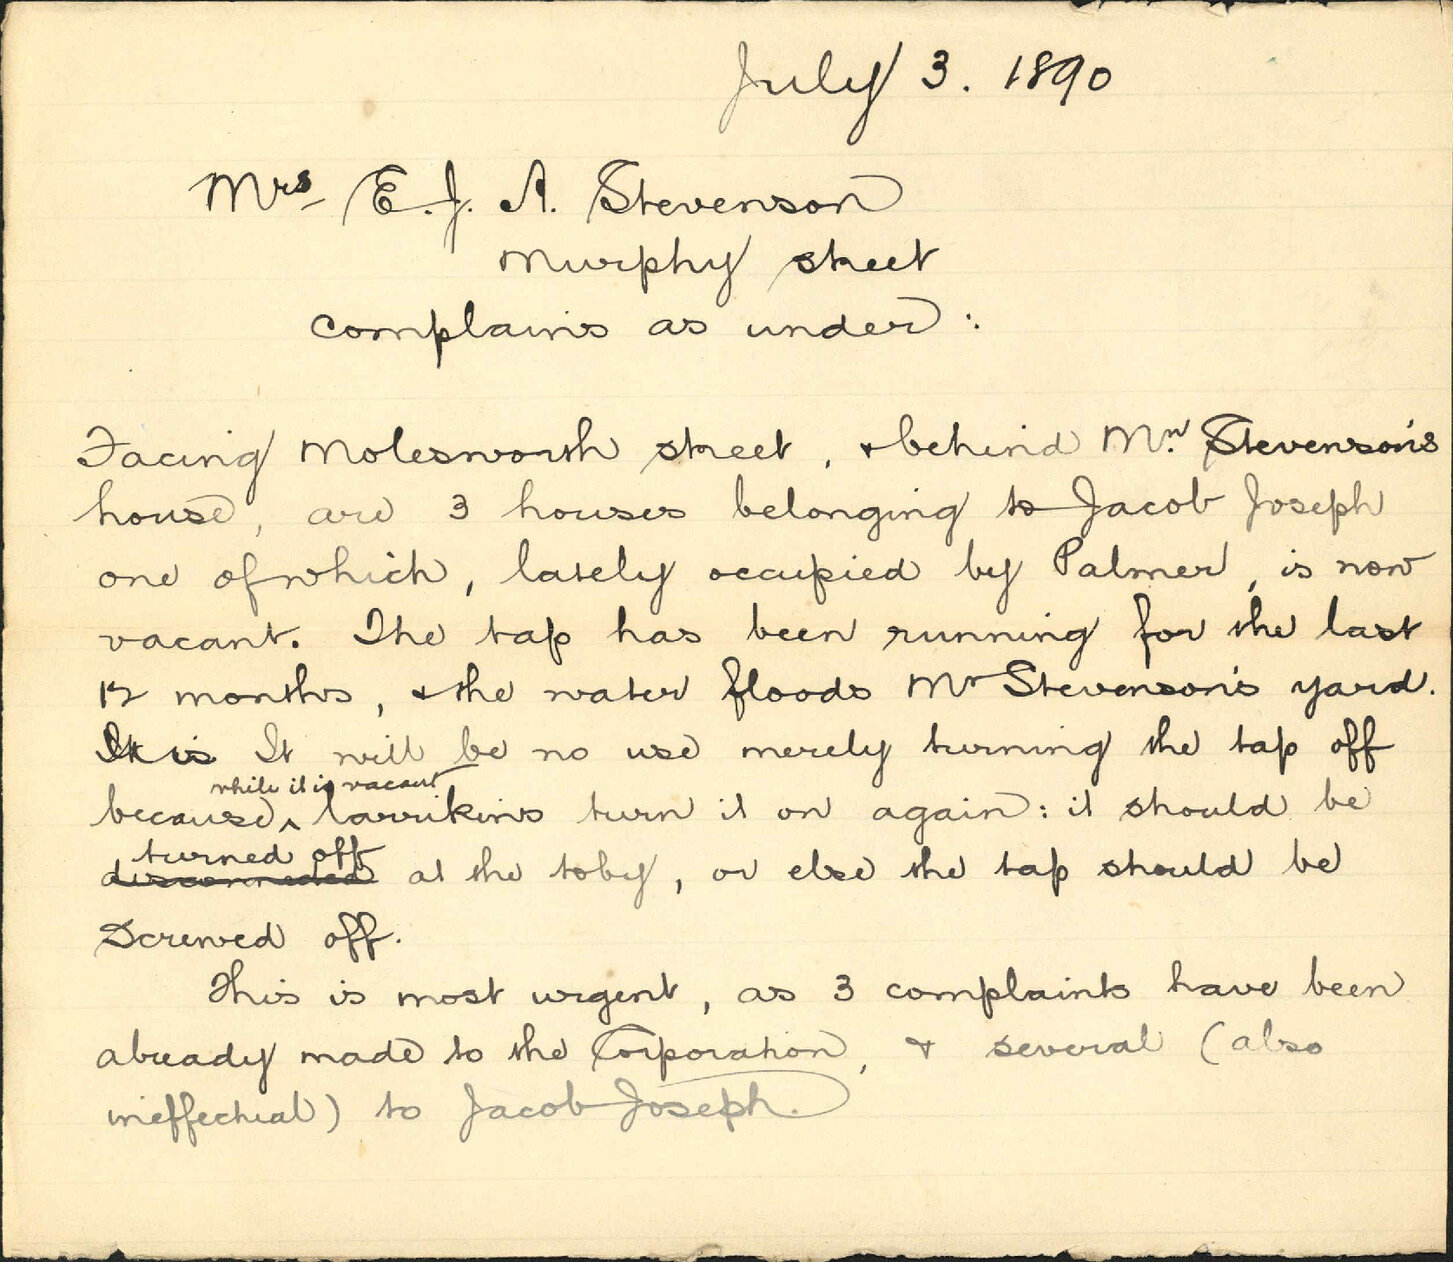 July 3. 1890
Mrs E. J. A. Stevenson
Murphy street
complains as under:
Facing Molesworth street, & behind Mrs. Stevenson's
house, are 3 houses belonging to Jacob Joseph
one of which, lately occupied by Palmer, is now
vacant. The tap has been running for the last
12 months, & the water floods Mrs Stevenson's yard.
It is It will be no use merely turning the tap off
while it is vacant
because ^ larrikins turn it on again: it should be
turned off
disconnected at the toby, or else the tap should be
screwed off.
This is most urgent, as 3 complaints have been
already made to the Corporation, & several (also
ineffectual) to Jacob Joseph.